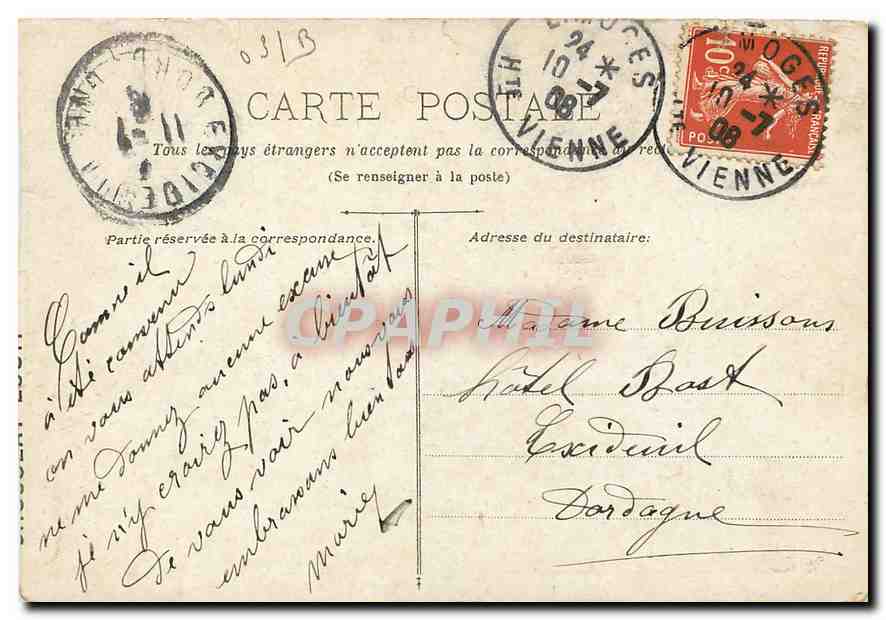 03/B
EXCIDEUIL
DORDOGNE
11 -7
08
LIMOGES
24
10 -7 *
08
Hte VIENNE
LIMOGES
24
10 -7 *
08
Hte VIENNE
REPUBLIQUE FRANÇAISE
10c
POSTES
CARTE POSTALE
Tous les pays étrangers n'acceptent pas la correspondance au recto
(Se renseigner à la poste)
Partie réservée à la correspondance.
Adresse du destinataire:
Comme il
a été convenu
on vous attends lundi
ne me donnez aucune excuse
je n'y croirez pas, a bientôt
de vous voir nous vous
embrassons bien tous
Marie
Madame Buissons
hôtel Bost
Exideuil
Dordogne
CPAPHIL